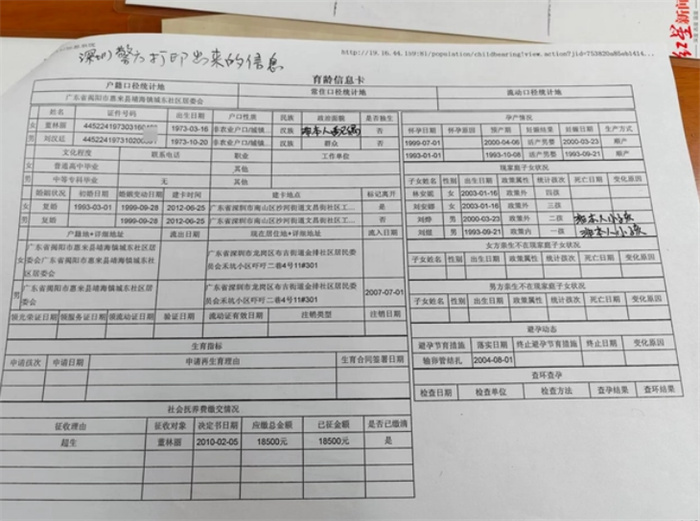 红星新闻
http://19.16.44.159:81/population/childbearing?view.action?jid=753820a85eb1414...
深圳警方打印出来的信息
育龄信息卡
户籍口径统计地 常住口径统计地 流动口径统计地
广东省揭阳市惠来县靖海镇城东社区居委会
姓名 证件号码 出生日期 户口性质 民族 政治面貌 是否独生
女 董林丽 1973-03-16 非农业户口/城镇... 汉族 否
男 刘汉廷 1973-10-20 非农业户口/城镇... 汉族 群众 否
文化程度 联系电话 职业 工作单位
女 普通高中毕业 其他
男 中等专科毕业 无 其他
婚姻状况 初婚日期 婚姻变动日期 建卡时间 建卡地点 标记离开
女 复婚 1993-03-01 1999-09-28 2012-06-25 广东省深圳市南山区沙河街道文昌街社区工... 是
男 复婚 1999-09-28 2012-06-25 广东省深圳市南山区沙河街道文昌街社区工... 否
户籍地+详细地址 流出日期 现在居住地+详细地址 流入日期
女 广东省揭阳市惠来县靖海镇城东社区居委会广东省揭阳市惠来县靖海镇城东社区居委会 广东省深圳市龙岗区布吉街道金排社区居民委员会禾坑小区吓吓二巷4号11#301
男 广东省揭阳市惠来县靖海镇城东社区居委会 广东省深圳市龙岗区布吉街道金排社区居民委员会禾坑小区吓吓二巷4号11#301 2007-07-01
领光荣证日期 领服务证日期 领流动证日期 验证日期 流动证有效日期 注销类型 注销日期
生育指标
申请孩次 申请日期 申请再生育理由 生育合同签署日期
社会抚养费缴交情况
征收理由 征收对象 决定书日期 应缴总金额 已征金额 是否已缴清
超生 董林丽 2010-02-05 18500元 18500元 是
孕产情况
怀孕日期 怀孕原因 预产期 妊娠结果 妊娠日期 生产方式
1999-07-01 2000-04-06 活产男婴 2000-03-23 顺产
1993-01-01 1993-10-08 活产男婴 1993-09-21 顺产
现家庭子女状况
子女姓名 性别 出生日期 政策属性 统计孩次 死亡日期 变化原因
女 2003-01-16 政策外 四孩
女 2003-01-16 政策外 三孩
男 2000-03-23 政策外 二孩
男 1993-09-21 政策内 一孩
女方亲生不在现家庭子女状况
子女姓名 性别 出生日期 政策属性 统计孩次 死亡日期 变化原因
男方亲生不在现家庭子女状况
子女姓名 性别 出生日期 政策属性 统计孩次 死亡日期 变化原因
避孕动态
避孕节育措施 落实日期 终止避孕节育措施 终止日期 变化原因
输卵管结扎 2004-08-01
查环查孕
检查日期 检查单位 检查方法 查孕结果 查环结果